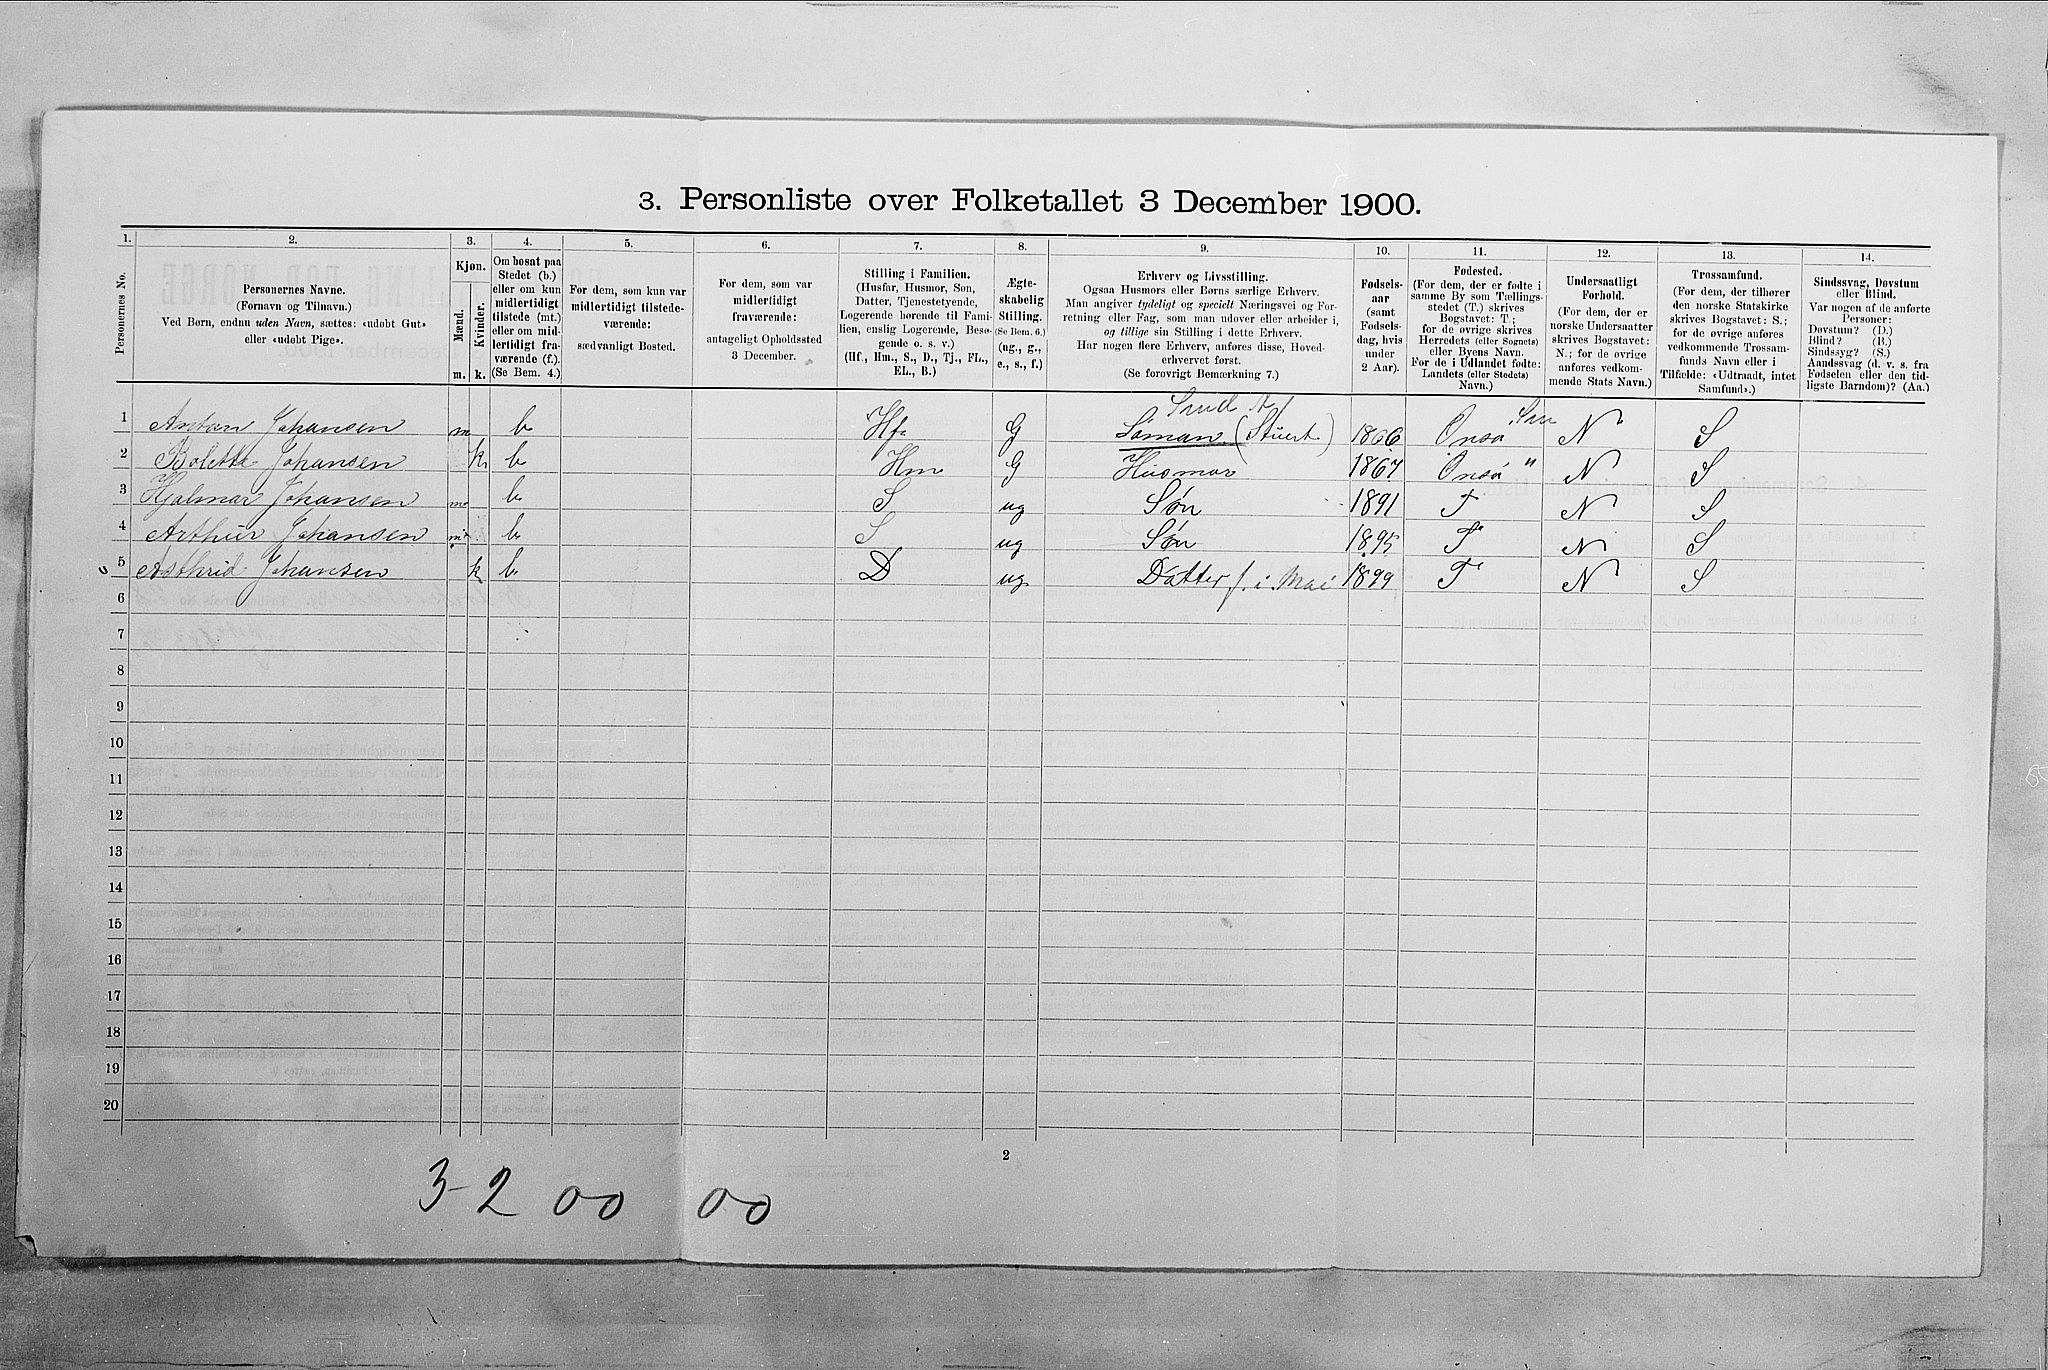 3. Personliste over Folketallet 3 December 1900.
1. 2. 3. 4. 5. 6. 7. 8. 9. 10. 11. 12. 13. 14.
Personernes No.
Personernes Navne.
(Fornavn og Tilnavn.)
Ved Børn, endnu uden Navn, sættes: «udøbt Gut»
eller «udøbt Pige».
Kjøn.
Mænd.
Kvinder.
m. k.
Om bosat paa
Stedet (b.)
eller om kun
midlertidigt
tilstede (mt.)
eller om mid-
lertidigt fra-
værende (f.).
(Se Bem. 4.)
For dem, som kun var
midlertidigt tilstede-
værende:
sædvanligt Bosted.
For dem, som var
midlertidigt
fraværende:
antageligt Opholdssted
3 December.
Stilling i Familien.
(Husfar, Husmor, Søn,
Datter, Tjenestetyende,
Logerende hørende til Fami-
lien, enslig Logerende, Besø-
gende o. s. v.)
(Hf., Hm., S., D., Tj., FL.,
EL., B.)
Ægte-
skabelig
Stilling.
(Se Bem. 6.)
(ug., g.,
e., s., f.)
Erhverv og Livsstilling.
Ogsaa Husmors eller Børns særlige Erhverv.
Man angiver tydeligt og specielt Næringsvei og For-
retning eller Fag, som man udover eller arbeider i,
og tillige sin Stilling i dette Erhverv.
Har nogen flere Erhverv, anføres disse, Hoved-
erhvervet først.
(Se forøvrigt Bemærkning 7.)
Fødsels-
aar
(samt
Fødsels-
dag, hvis
under
2 Aar).
Fødested.
(For dem, der er fødte i
samme By som Tællings-
stedet (T.) skrives
Bogstavet: T.;
for de øvrige skrives
Herredets (eller Sognets)
eller Byens Navn.
For de i Udlandet fødte:
Landets (eller Stedets)
Navn.)
Undersaatligt
Forhold.
(For dem, der er
norske Undersaatter
skrives Bogstavet:
N.; for de øvrige
anføres vedkom-
mende Stats Navn.)
Trossamfund.
(For dem, der tilhører
den norske Statskirke
skrives Bogstavet: S.;
for de øvrige anføres
vedkommende Trossam-
funds Navn eller i
Tilfælde: «Udtraadt, intet
Samfund».)
Sindssvag, Døvstum
eller Blind.
Var nogen af de anførte
Personer:
Døvstum? (D.)
Blind? (B.)
Sindssyg? (S.)
Aandssvag (d. v. s. fra
Fødselen eller den tid-
ligste Barndom)? (Aa.)
1 Anton Johansen m b Hf. G Söman (Stuert) 1866 Onsö N S
2 Bolette Johansen k b Hm G Husmor 1867 Onsö " N S
3 Hjalmar Johansen m b S ug Søn 1891 T N S
4 Arthur Johansen m b S ug Søn 1895 T N S
5 Asthrid Johansen k b D ug Datter f. i Mai 1899 T N S
6
7
8
9
10
11
12
13
14
15
16
17
18
19
20
2
3-2 00 00